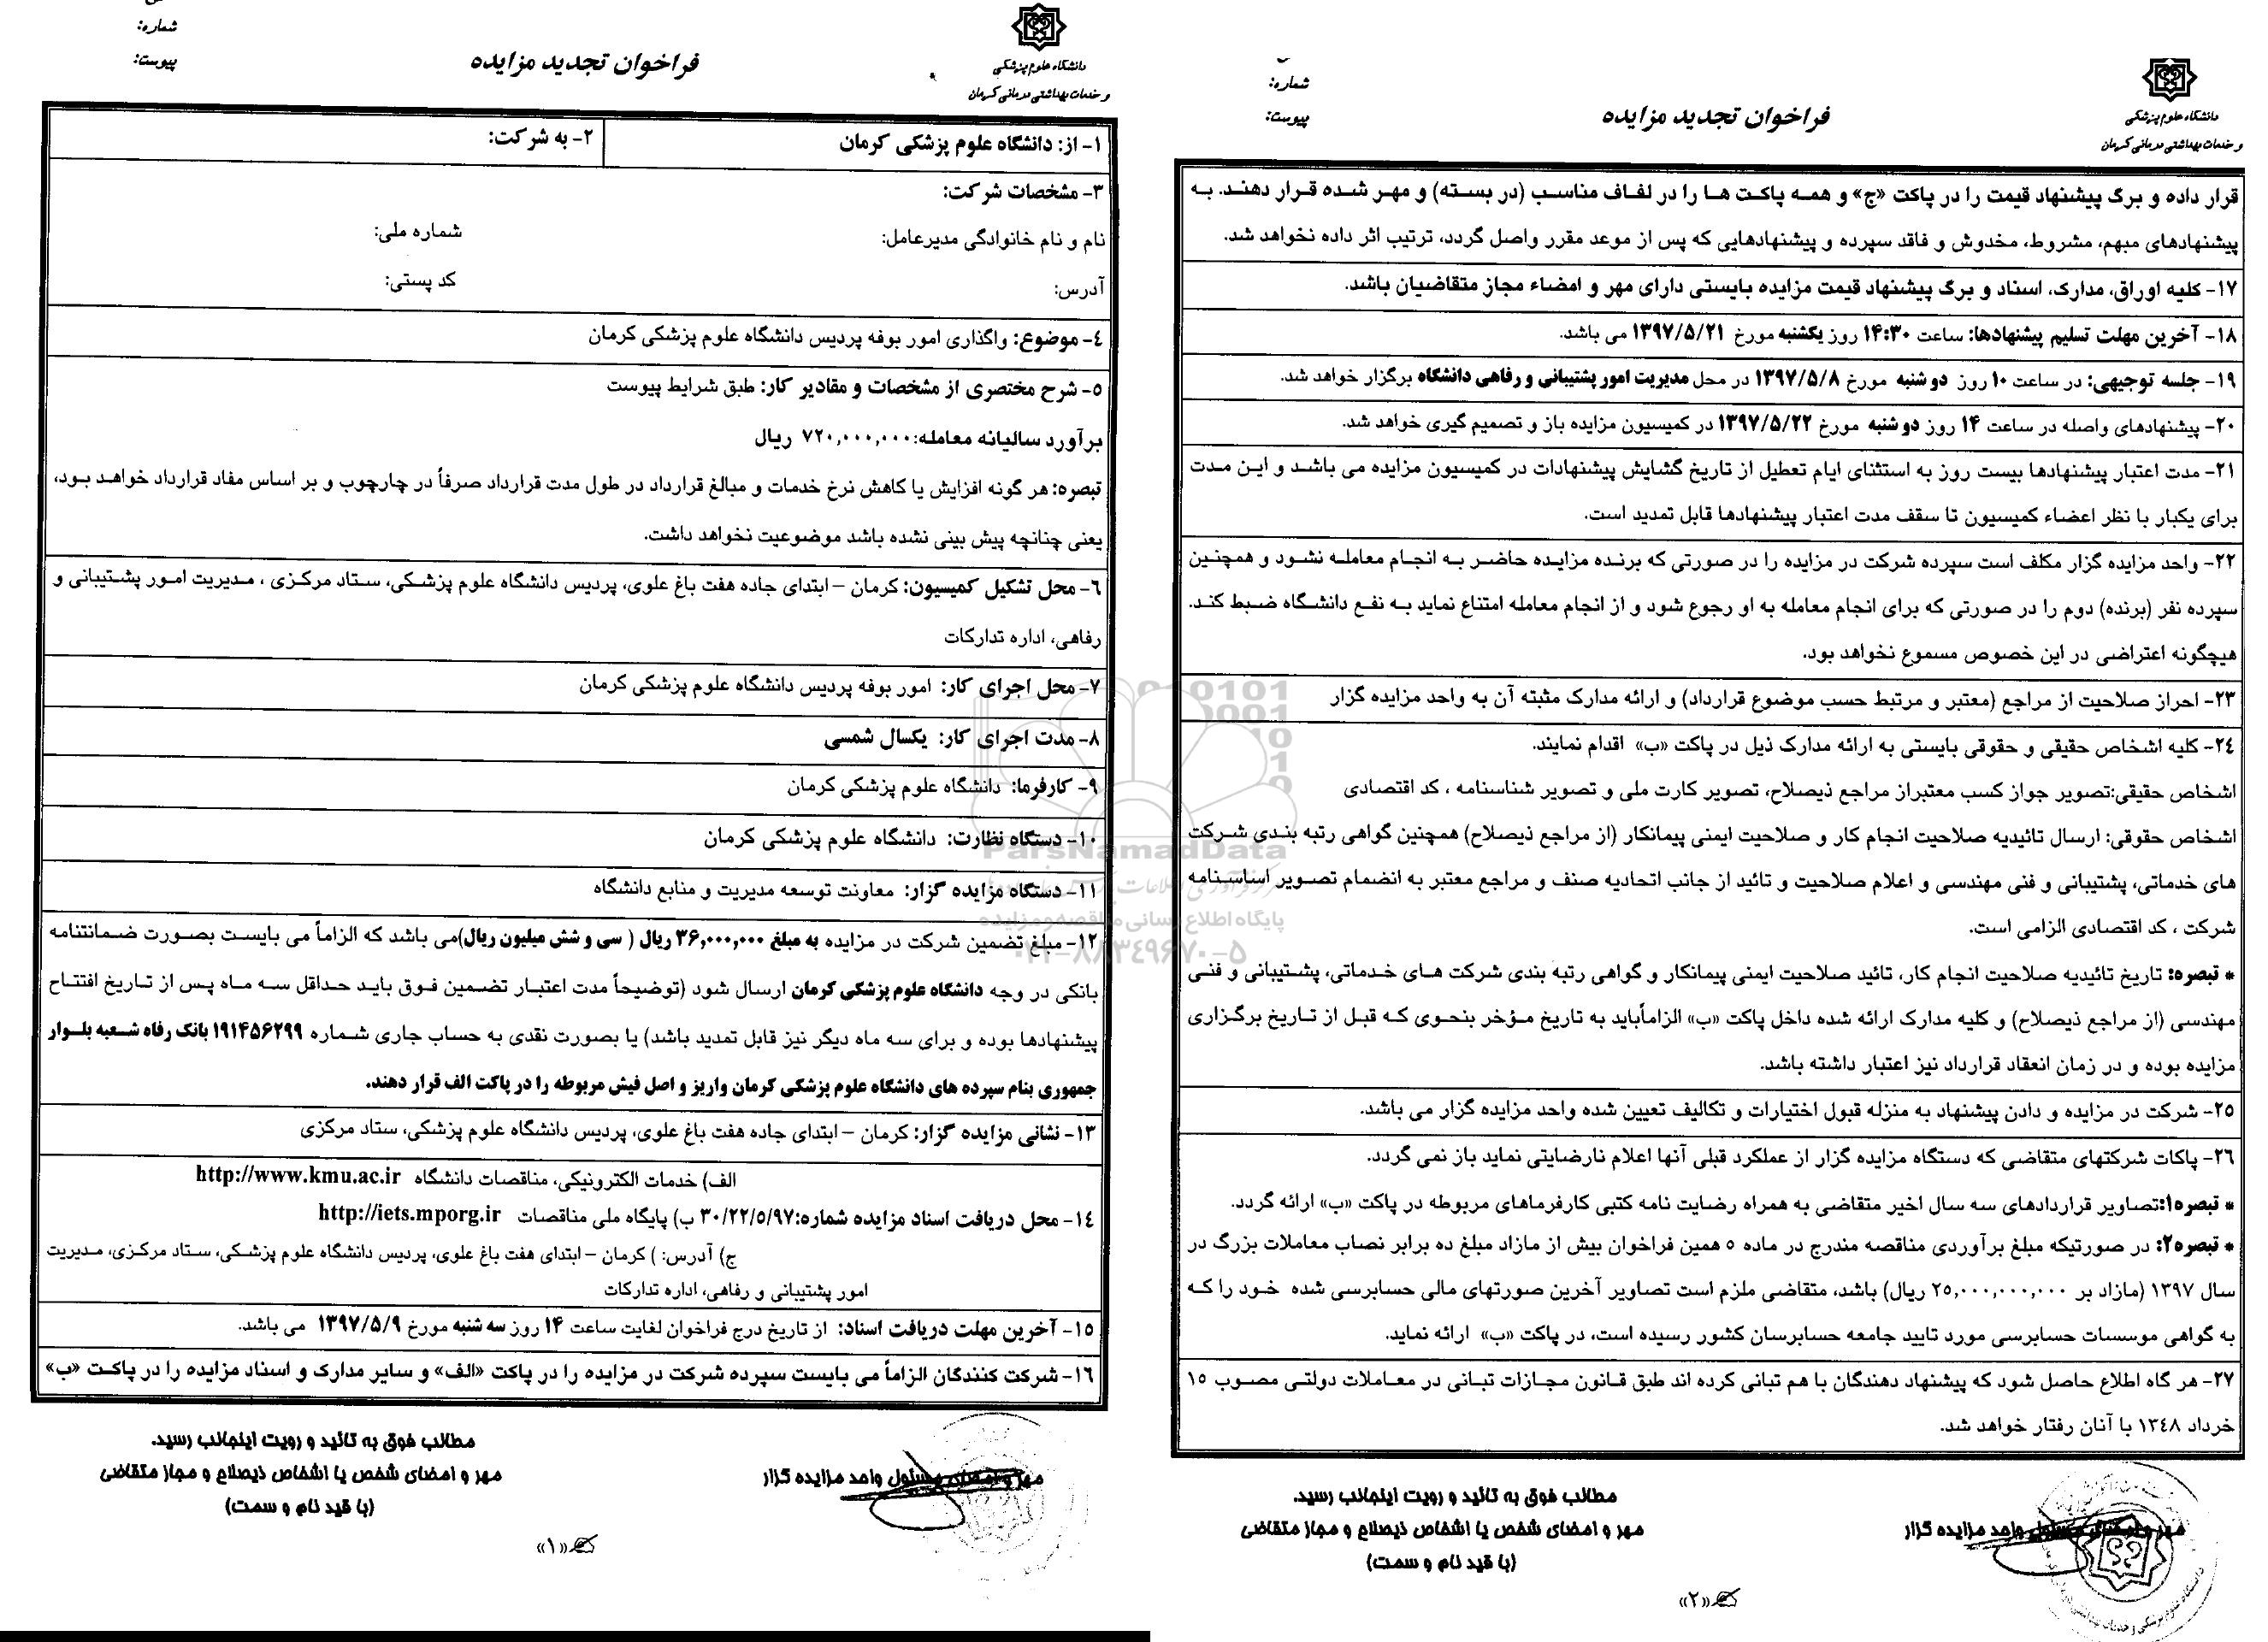 شماره:
پیوست:
فراخوان تجدید مزایده
دانشگاه علوم پزشکی
و خدمات بهداشتی درمانی کرمان
۱- از: دانشگاه علوم پزشکی کرمان
۲- به شرکت:
۳- مشخصات شرکت:
نام و نام خانوادگی مدیرعامل:
شماره ملی:
آدرس:
کد پستی:
٤- موضوع: واگذاری امور بوفه پردیس دانشگاه علوم پزشکی کرمان
٥- شرح مختصری از مشخصات و مقادیر کار: طبق شرایط پیوست
برآورد سالیانه معامله: ۷۲۰,۰۰۰,۰۰۰ ریال
تبصره: هر گونه افزایش یا کاهش نرخ خدمات و مبالغ قرارداد در طول مدت قرارداد صرفاً در چارچوب و بر اساس مفاد قرارداد خواهد بود،
یعنی چنانچه پیش بینی نشده باشد موضوعیت نخواهد داشت.
٦- محل تشکیل کمیسیون: کرمان – ابتدای جاده هفت باغ علوی، پردیس دانشگاه علوم پزشکی، ستاد مرکزی ، مدیریت امور پشتیبانی و
رفاهی، اداره تدارکات
۷- محل اجرای کار: امور بوفه پردیس دانشگاه علوم پزشکی کرمان
۸- مدت اجرای کار: یکسال شمسی
۹- کارفرما: دانشگاه علوم پزشکی کرمان
۱۰- دستگاه نظارت: دانشگاه علوم پزشکی کرمان
۱۱- دستگاه مزایده گزار: معاونت توسعه مدیریت و منابع دانشگاه
۱۲- مبلغ تضمین شرکت در مزایده به مبلغ ۳۶,۰۰۰,۰۰۰ ریال ( سی و شش میلیون ریال)می باشد که الزاماً می بایست بصورت ضمانتنامه
بانکی در وجه دانشگاه علوم پزشکی کرمان ارسال شود (توضیحاً مدت اعتبار تضمین فوق باید حداقل سه ماه پس از تاریخ افتتاح
پیشنهادها بوده و برای سه ماه دیگر نیز قابل تمدید باشد) یا بصورت نقدی به حساب جاری شماره ۱۹۱۴۵۶۲۹۹ بانک رفاه شعبه بلوار
جمهوری بنام سپرده های دانشگاه علوم پزشکی کرمان واریز و اصل فیش مربوطه را در پاکت الف قرار دهند.
۱۳- نشانی مزایده گزار: کرمان – ابتدای جاده هفت باغ علوی، پردیس دانشگاه علوم پزشکی، ستاد مرکزی
الف) خدمات الکترونیکی، مناقصات دانشگاه http://www.kmu.ac.ir
۱٤- محل دریافت اسناد مزایده شماره:۳۰/۲۲/۵/۹۷ ب) پایگاه ملی مناقصات http://iets.mporg.ir
ج) آدرس: ) کرمان – ابتدای هفت باغ علوی، پردیس دانشگاه علوم پزشکی، ستاد مرکزی، مدیریت
امور پشتیبانی و رفاهی، اداره تدارکات
۱٥- آخرین مهلت دریافت اسناد: از تاریخ درج فراخوان لغایت ساعت ۱۴ روز سه شنبه مورخ ۱۳۹۷/۵/۹ می باشد.
۱٦- شرکت کنندگان الزاماً می بایست سپرده شرکت در مزایده را در پاکت «الف» و سایر مدارک و اسناد مزایده را در پاکت «ب»
مطالب فوق به تائید و رویت اینجانب رسید.
مهر و امضای شخص یا اشخاص ذیصلاح و مجاز متقاضی
(با قید نام و سمت)
مهر و امضای مسئول واحد مزایده گزار
«۱»
شماره:
پیوست:
فراخوان تجدید مزایده
دانشگاه علوم پزشکی
و خدمات بهداشتی درمانی کرمان
قرار داده و برگ پیشنهاد قیمت را در پاکت «ج» و همه پاکت ها را در لفاف مناسب (در بسته) و مهر شده قرار دهند. به
پیشنهادهای مبهم، مشروط، مخدوش و فاقد سپرده و پیشنهادهایی که پس از موعد مقرر واصل گردد، ترتیب اثر داده نخواهد شد.
۱۷- کلیه اوراق، مدارک، اسناد و برگ پیشنهاد قیمت مزایده بایستی دارای مهر و امضاء مجاز متقاضیان باشد.
۱۸- آخرین مهلت تسلیم پیشنهادها: ساعت ۱۴:۳۰ روز یکشنبه مورخ ۱۳۹۷/۵/۲۱ می باشد.
۱۹- جلسه توجیهی: در ساعت ۱۰ روز دو شنبه مورخ ۱۳۹۷/۵/۸ در محل مدیریت امور پشتیبانی و رفاهی دانشگاه برگزار خواهد شد.
۲۰- پیشنهادهای واصله در ساعت ۱۴ روز دو شنبه مورخ ۱۳۹۷/۵/۲۲ در کمیسیون مزایده باز و تصمیم گیری خواهد شد.
۲۱- مدت اعتبار پیشنهادها بیست روز به استثنای ایام تعطیل از تاریخ گشایش پیشنهادات در کمیسیون مزایده می باشد و این مدت
برای یکبار با نظر اعضاء کمیسیون تا سقف مدت اعتبار پیشنهادها قابل تمدید است.
۲۲- واحد مزایده گزار مکلف است سپرده شرکت در مزایده را در صورتی که برنده مزایده حاضر به انجام معامله نشود و همچنین
سپرده نفر (برنده) دوم را در صورتی که برای انجام معامله به او رجوع شود و از انجام معامله امتناع نماید به نفع دانشگاه ضبط کند.
هیچگونه اعتراضی در این خصوص مسموع نخواهد بود.
۲۳- احراز صلاحیت از مراجع (معتبر و مرتبط حسب موضوع قرارداد) و ارائه مدارک مثبته آن به واحد مزایده گزار
۲٤- کلیه اشخاص حقیقی و حقوقی بایستی به ارائه مدارک ذیل در پاکت «ب» اقدام نمایند.
اشخاص حقیقی:تصویر جواز کسب معتبراز مراجع ذیصلاح، تصویر کارت ملی و تصویر شناسنامه ، کد اقتصادی
اشخاص حقوقی: ارسال تائیدیه صلاحیت انجام کار و صلاحیت ایمنی پیمانکار (از مراجع ذیصلاح) همچنین گواهی رتبه بندی شرکت
های خدماتی، پشتیبانی و فنی مهندسی و اعلام صلاحیت و تائید از جانب اتحادیه صنف و مراجع معتبر به انضمام تصویر اساسنامه
شرکت ، کد اقتصادی الزامی است.
* تبصره: تاریخ تائیدیه صلاحیت انجام کار، تائید صلاحیت ایمنی پیمانکار و گواهی رتبه بندی شرکت های خدماتی، پشتیبانی و فنی
مهندسی (از مراجع ذیصلاح) و کلیه مدارک ارائه شده داخل پاکت «ب» الزاماًباید به تاریخ مؤخر بنحوی که قبل از تاریخ برگزاری
مزایده بوده و در زمان انعقاد قرارداد نیز اعتبار داشته باشد.
۲٥- شرکت در مزایده و دادن پیشنهاد به منزله قبول اختیارات و تکالیف تعیین شده واحد مزایده گزار می باشد.
۲٦- پاکات شرکتهای متقاضی که دستگاه مزایده گزار از عملکرد قبلی آنها اعلام نارضایتی نماید باز نمی گردد.
* تبصره۱:تصاویر قراردادهای سه سال اخیر متقاضی به همراه رضایت نامه کتبی کارفرماهای مربوطه در پاکت «ب» ارائه گردد.
* تبصره۲: در صورتیکه مبلغ برآوردی مناقصه مندرج در ماده ٥ همین فراخوان بیش از مازاد مبلغ ده برابر نصاب معاملات بزرگ در
سال ۱۳۹۷ (مازاد بر ۲٥,۰۰۰,۰۰۰,۰۰۰ ریال) باشد، متقاضی ملزم است تصاویر آخرین صورتهای مالی حسابرسی شده خود را که
به گواهی موسسات حسابرسی مورد تایید جامعه حسابرسان کشور رسیده است، در پاکت «ب» ارائه نماید.
۲۷- هر گاه اطلاع حاصل شود که پیشنهاد دهندگان با هم تبانی کرده اند طبق قانون مجازات تبانی در معاملات دولتی مصوب ۱٥
خرداد ۱۳٤۸ با آنان رفتار خواهد شد.
مطالب فوق به تائید و رویت اینجانب رسید.
مهر و امضای شخص یا اشخاص ذیصلاح و مجاز متقاضی
(با قید نام و سمت)
مهر و امضای مسئول واحد مزایده گزار
«۲»
ParsNamadData
پایگاه اطلاع رسانی مناقصه و مزایده
۰۲۱-۸۸۳۴۹۶۷۰-۵